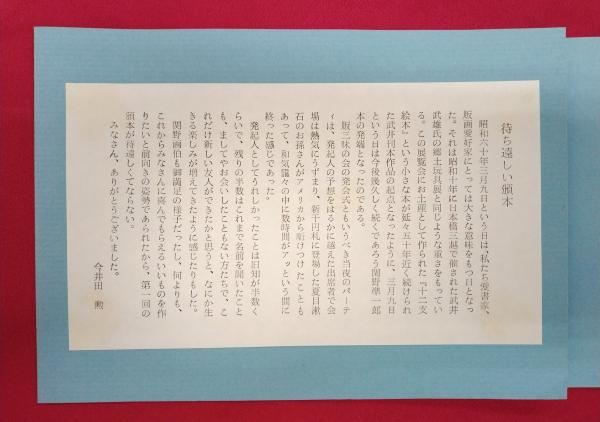 待ち遠しい頒本
昭和六十年三月九日という日は、私たち愛書家、
版画愛好家にとっては大きな意味をもつ日となっ
た。それは昭和十年に日本橋三越で催された武井
武雄氏の郷土玩具展と同じような重さをもってい
る。この展覧会にお土産として作られた『十二支
絵本』という小さな本が延々五十年近く続けられ
た武井刊本作品の起点となったように、三月九日
という日は今後幾久しく続くであろう関野凖一郎
本の発端となったのである。
版三昧の会の発会式ともいうべき当夜のパーテ
ィは、発起人の予想をはるかに越えた出席者で会
場は熱気にうずまり、新千円札に登場した夏目漱
石のお孫さんがアメリカから駈けつけたことも
あって、和気靄々の中に数時間がアッという間に
終った感じであった。
発起人としてうれしかったことは旧知が半数く
らいで、残りの半数はこれまで名前を聞いたこと
も、ましてやお会いしたこともない方たちで、こ
れだけ新しい友人ができたかと思うと、なにか生
きる楽しみが増えてきたように感じたりもした。
関野画伯も御満足の様子だったし、何よりも、
これからみなさんに喜んでもらえるいいものを作
りたいと前向きの姿勢であられたから、第一回の
頒本が待遠しくてならない。
みなさん、ありがとうございました。
今井田　勲